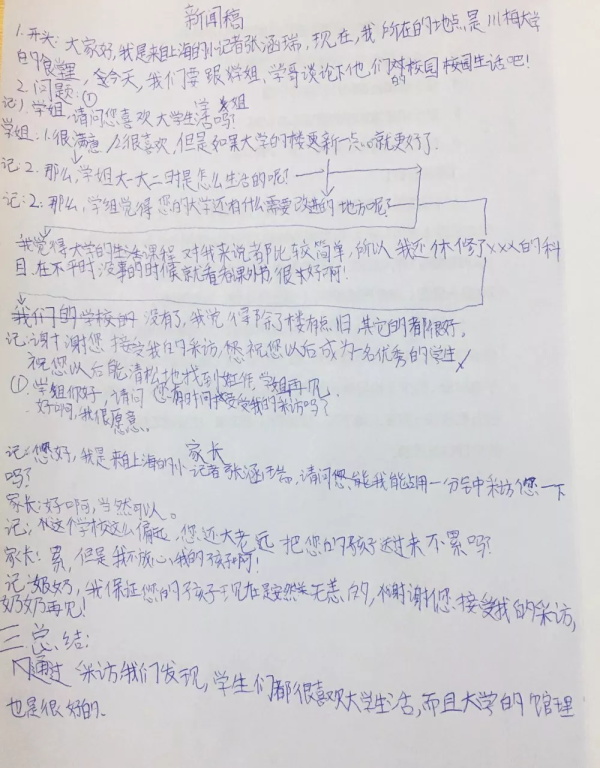 新闻稿
1.开头:大家好,我是来自上海的小记者张涵瑞,现在,我所在的地点是川相大学
的食堂,今天,我们要跟学姐,学哥谈论下他们对校园校园生活吧!
的
2.问题:①
学姐
记:学姐,请问您喜欢大学生活吗?
学姐:1.很满意 2.很喜欢,但是如果大学的楼更新一点就更好了.
记:2.那么,学姐大一大二时是怎么生活的呢?
记:2:那么,学姐觉得您的大学还有什么需要改进的地方呢?
我觉得大学的生活课程对我来说都比较简单,所以我还休修了xxx的科
目.在平时没事的时候就看看课外书,很好啊!
我们的学校的没有了,我觉得除了楼有点旧,其它的都很好。
记:谢谢您接受我的采访,祝您以后成为一名优秀的学生
祝您以后能清松地找到好工作,学姐再见
①学姐你好,请问您有时间接受我的采访吗?
好啊,我很愿意.
家长
记:您好,我是来自上海的小记者张涵瑞,请问您能我能占用一分钟采访您一下
吗?
家长:好啊,当然可以。
记:这个学校这么偏远,您还大老远把您的孩子送过来不累吗?
家长:累,但是我不放心我的孩子啊!
记:奶奶,我保证您的孩子现在是安然无恙的,谢谢您接受我的采访,
奶奶再见!
三总结:
通过采访我们发现,学生们都很喜欢大学生活,而且大学的管理
也是很好的.